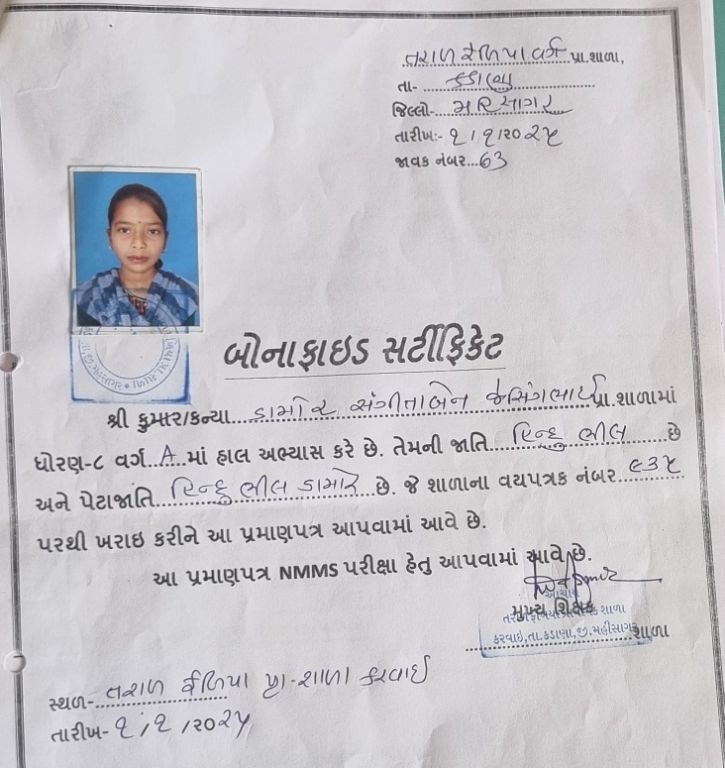 તરાળ રેળિયા વર્ગ પ્રા.શાળા,
તા- કડાણા
જિલ્લો- મહિસાગર
તારીખઃ- ૧/૧/૨૦૨૫
જાવક નંબર...63
બોનાફાઇડ સર્ટીફિકેટ
શ્રી કુમાર/કન્યા ડામોર સંગીતાબેન જેસિંગભાઈ પ્રા.શાળામાં
ધોરણ-૮ વર્ગ..A..માં હાલ અભ્યાસ કરે છે. તેમની જાતિ હિન્દુ ભીલ છે
અને પેટાજાતિ હિન્દુ ભીલ ડામોર છે. જે શાળાના વયપત્રક નંબર ૯૩૫
પરથી ખરાઇ કરીને આ પ્રમાણપત્ર આપવામાં આવે છે.
આ પ્રમાણપત્ર NMMS પરીક્ષા હેતુ આપવામાં આવે છે.
આચાર્ય
મુખ્ય શિક્ષક
શાળા
કરવાઇ,તા.કડાણા,જી.મહીસાગર
શાળા
સ્થળ- તરાળ ફળિયા પ્રા-શાળા કરવાઈ
તારીખ- ૧/૧/૨૦૨૫